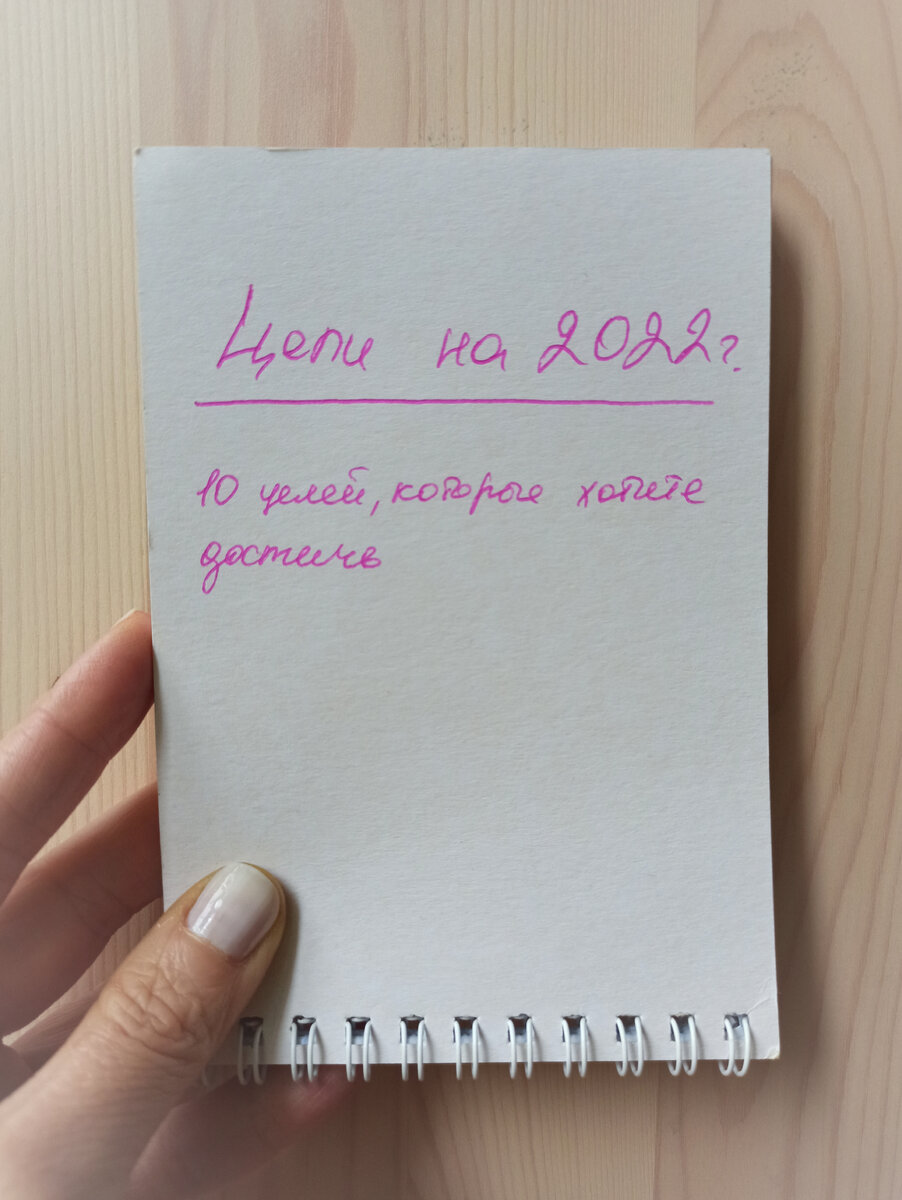 Цели на 2022г.
10 целей, которые хотите
достичь